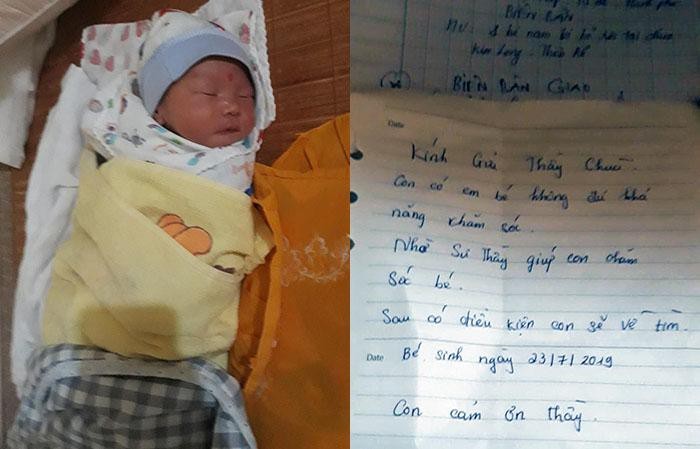 BIÊN BẢN
BIÊN BẢN GIAO
Date
Kính Gửi Thầy Chùa.
Con có em bé không đủ khả
năng chăm sóc.
Nhờ Sư Thầy giúp con chăm
sóc bé.
Sau có điều kiện con sẽ về tìm.
Date Bé sinh ngày 23/7/2019
Con cảm ơn thầy.